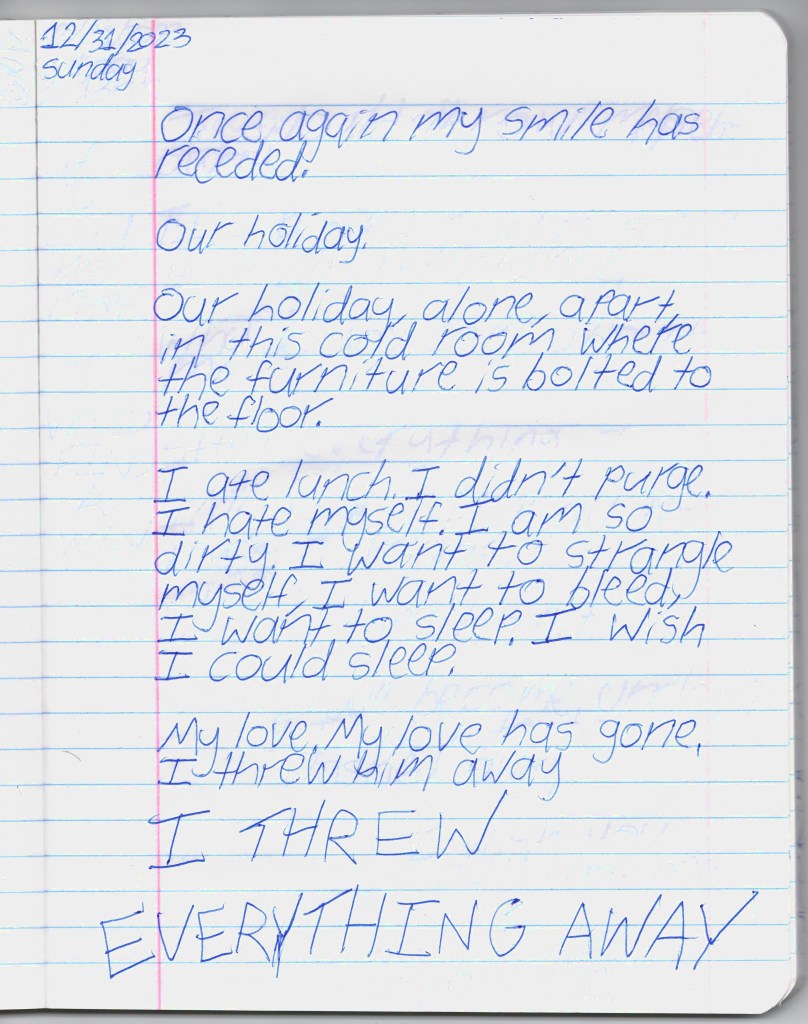 12/31/2023
sunday
Once again my smile has
receded.
Our holiday.
Our holiday, alone, apart,
in this cold room where
the furniture is bolted to
the floor.
I ate lunch. I didn't purge.
I hate myself. I am so
dirty. I want to strangle
myself, I want to bleed,
I want to sleep. I wish
I could sleep.
My love. My love has gone.
I threw him away
I THREW
EVERYTHING AWAY